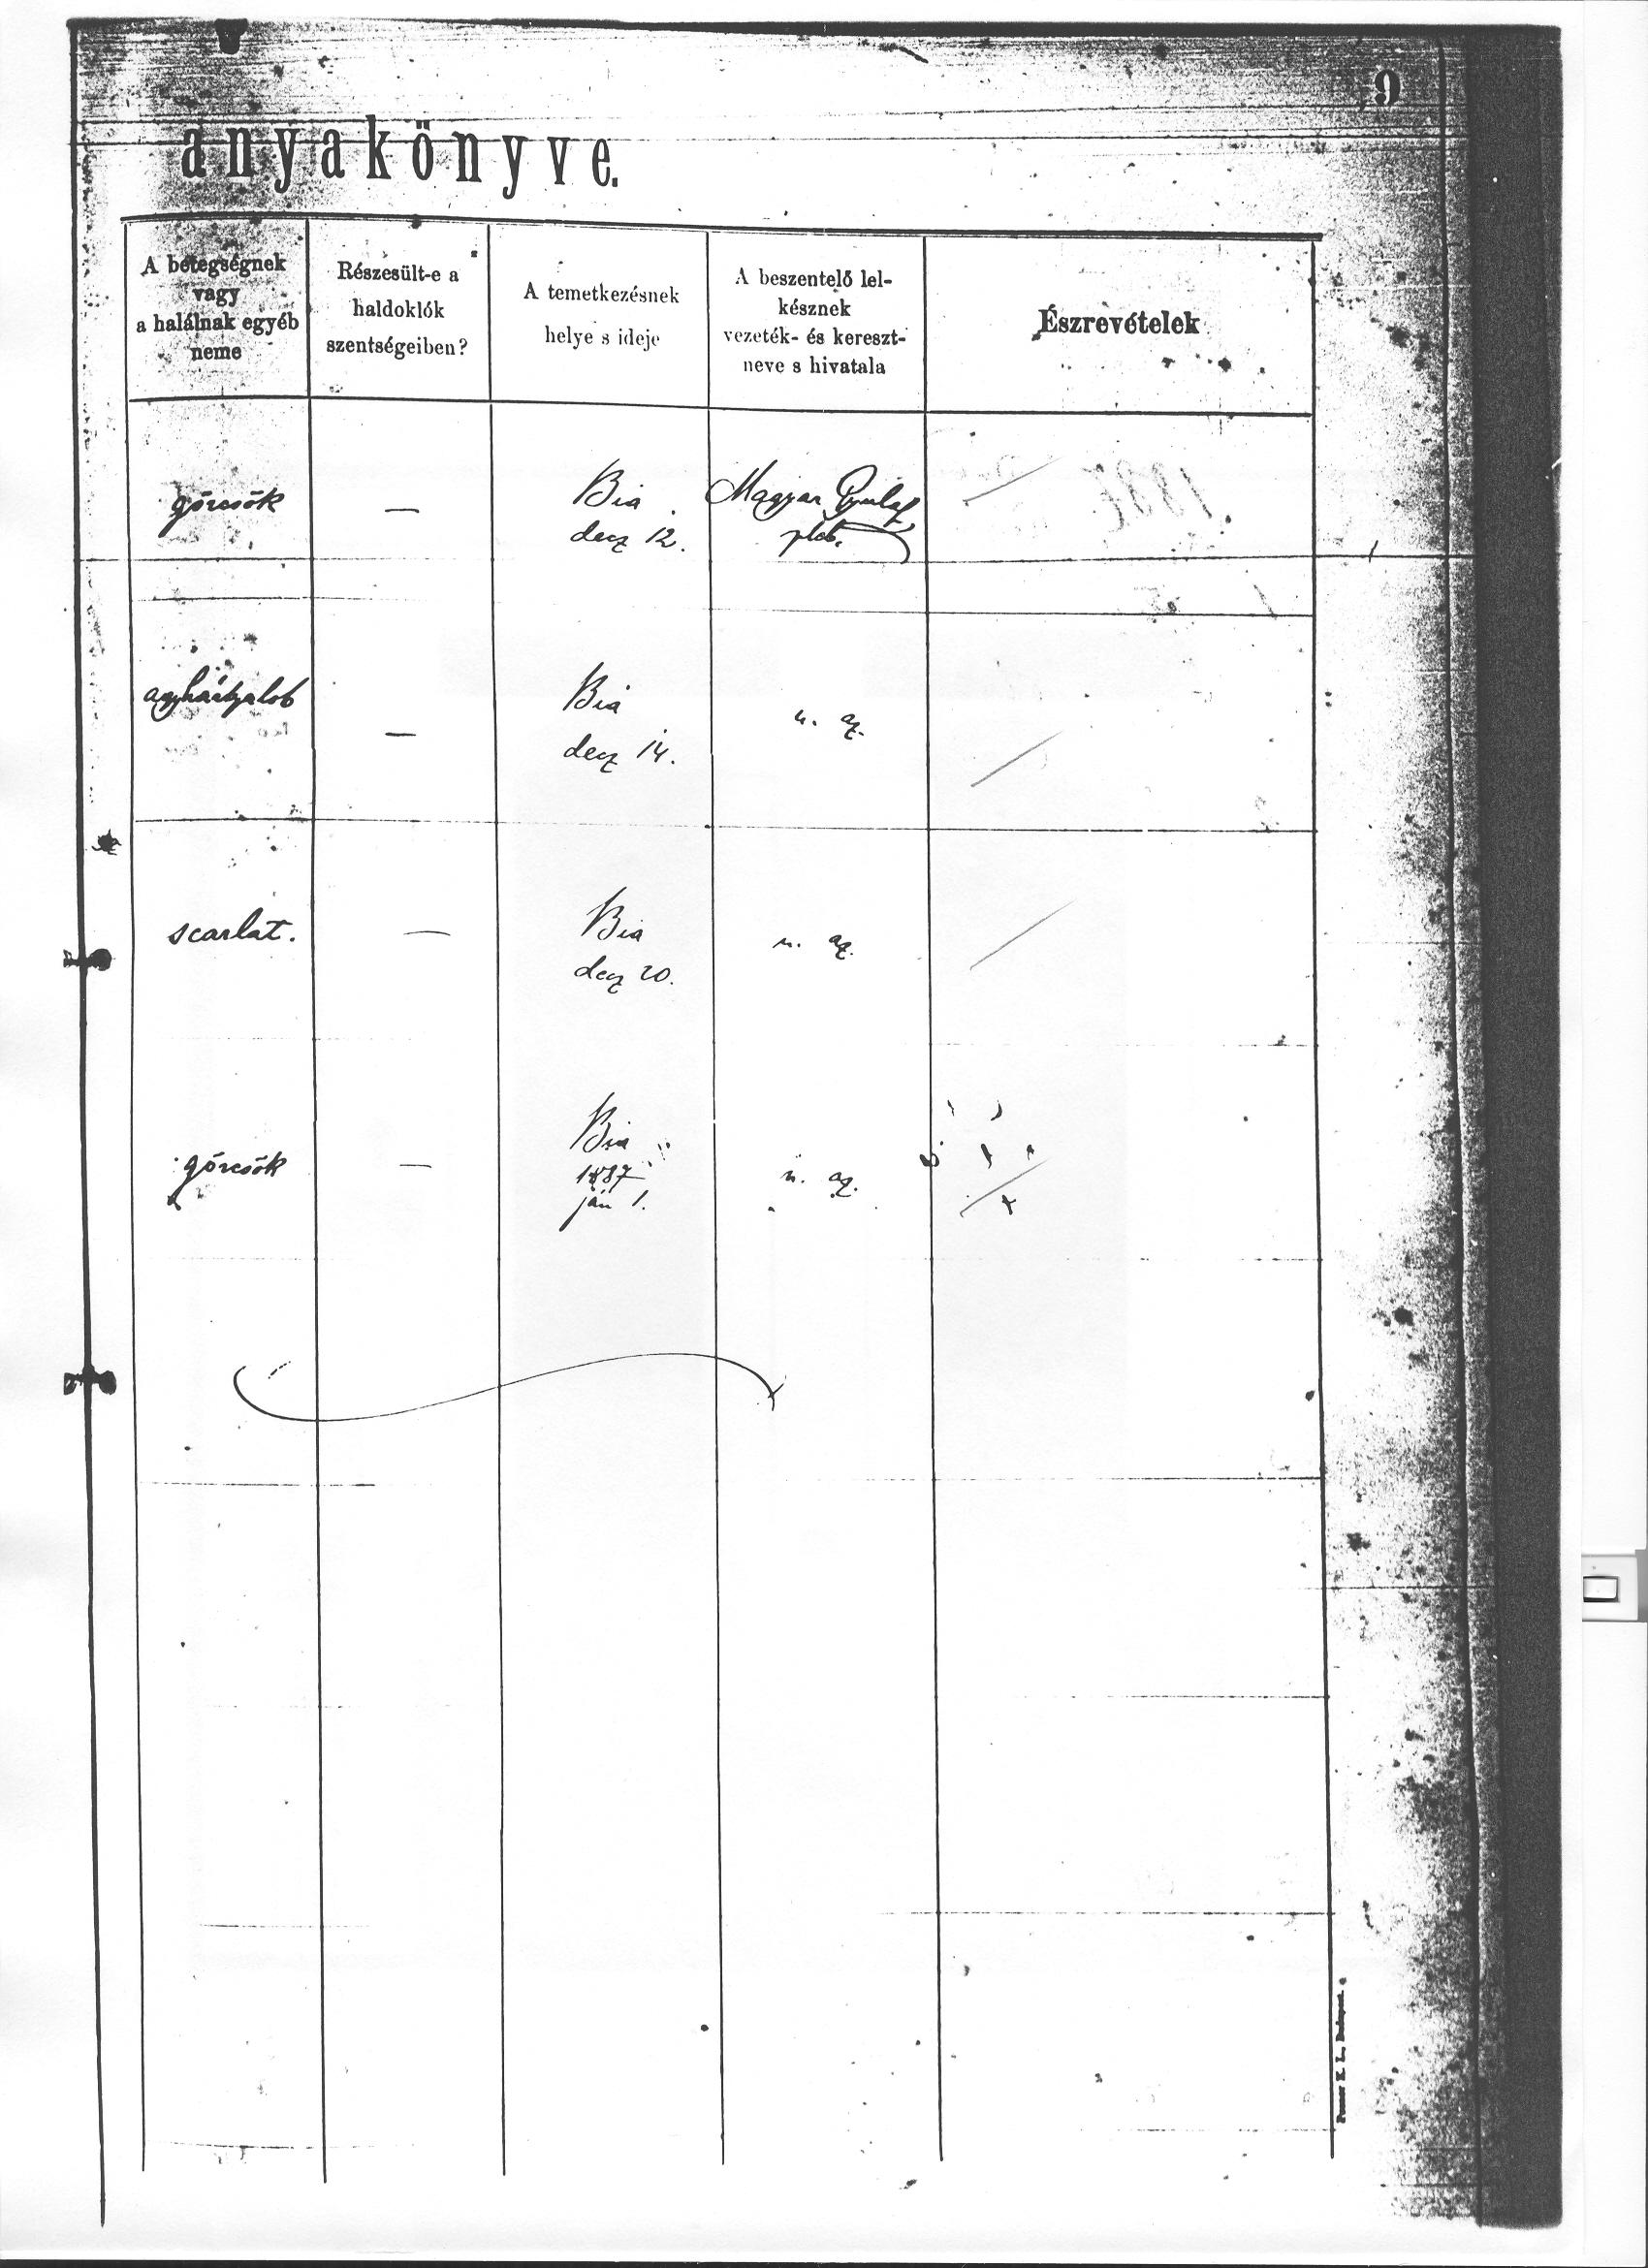 9
anyakönyve.
A betegségnek
vagy
a halálnak egyéb
neme
Részesült-e a
haldoklók
szentségeiben?
A temetkezésnek
helye s ideje
A beszentelő lel-
késznek
vezeték- és kereszt-
neve s hivatala
Észrevételek
görcsök
—
Bia
decz 12.
Magyar Gyula
pléb.
agyhártyalob
—
Bia
decz 14.
u. az.
scarlat.
—
Bia
decz 20.
u. az.
görcsök
—
Bia
1887
ján 1.
u. az.
Posner K. L., Budapest.